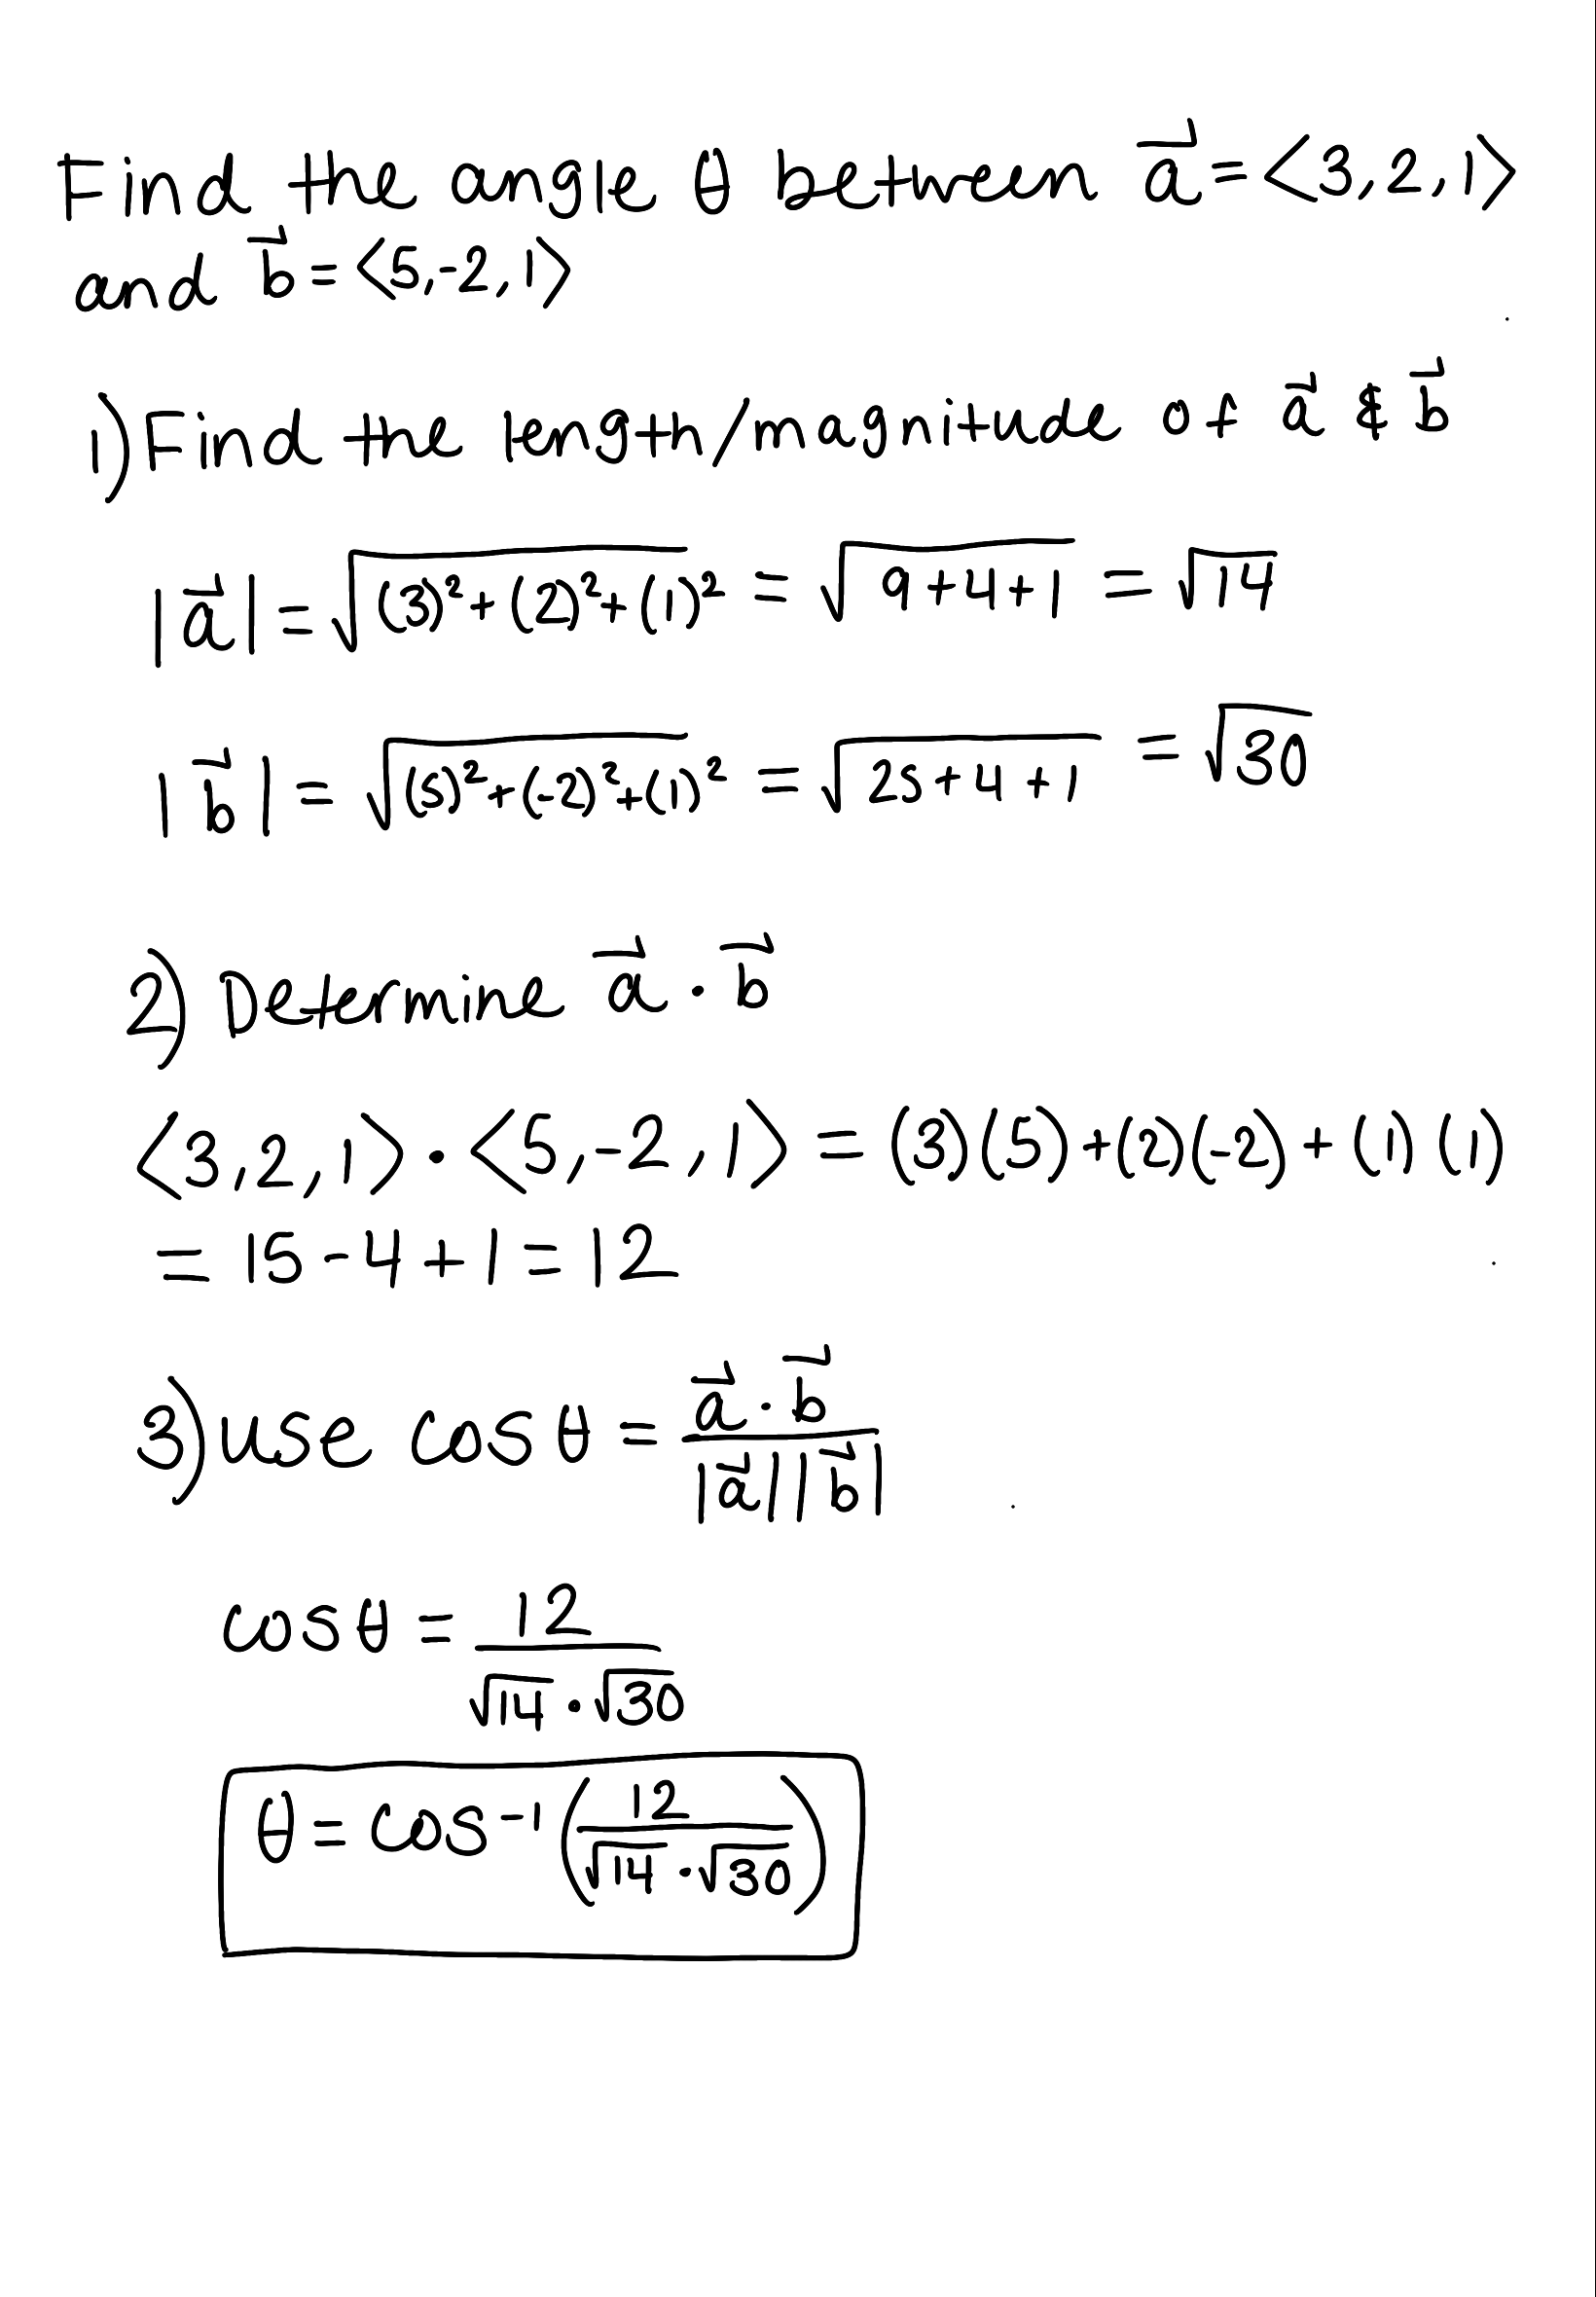 Find the angle θ between a⃗ = <3, 2, 1>
and b⃗ = <5, -2, 1>
1) Find the length/magnitude of a⃗ & b⃗
|a⃗| = √((3)² + (2)² + (1)²) = √(9+4+1) = √14
|b⃗| = √((5)² + (-2)² + (1)²) = √(25+4+1) = √30
2) Determine a⃗ · b⃗
<3, 2, 1> · <5, -2, 1> = (3)(5) + (2)(-2) + (1)(1)
= 15 - 4 + 1 = 12
3) use cos θ = (a⃗ · b⃗)/(|a⃗||b⃗|)
cos θ = 12/(√14 · √30)
θ = cos⁻¹(12/(√14 · √30))